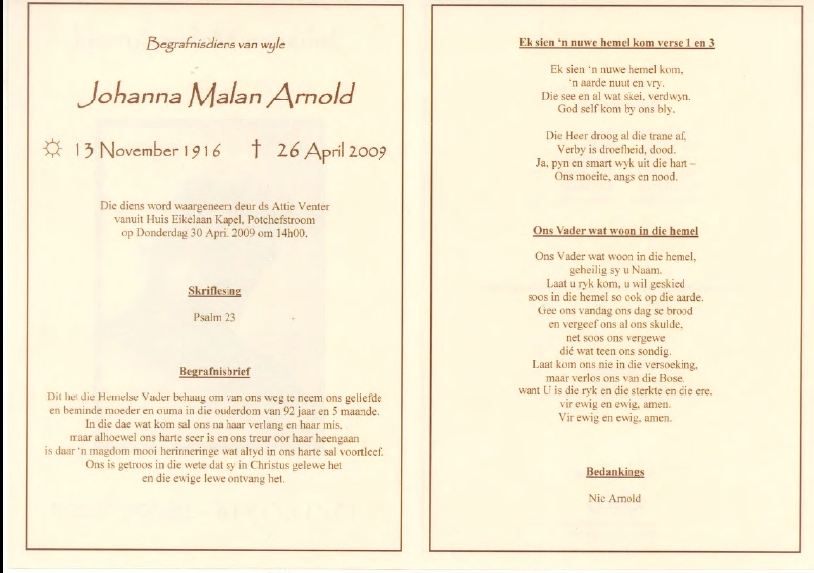 Begrafnisdiens van wyle
Johanna Malan Arnold
☼ 13 November 1916 † 26 April 2009
Die diens word waargeneem deur ds Attie Venter
vanuit Huis Eikelaan Kapel, Potchefstroom
op Donderdag 30 April 2009 om 14h00.
Skriflesing
Psalm 23
Begrafnisbrief
Dit het die Hemelse Vader behaag om van ons weg te neem ons geliefde
en beminde moeder en ouma in die ouderdom van 92 jaar en 5 maande.
In die dae wat kom sal ons na haar verlang en haar mis,
maar alhoewel ons harte seer is en ons treur oor haar heengaan
is daar 'n magdom mooi herinneringe wat altyd in ons harte sal voortleef.
Ons is getroos in die wete dat sy in Christus gelewe het
en die ewige lewe ontvang het.
Ek sien 'n nuwe hemel kom verse 1 en 3
Ek sien 'n nuwe hemel kom,
'n aarde nuut en vry.
Die see en al wat skei, verdwyn.
God self kom by ons bly.
Die Heer droog al die trane af,
Verby is droefheid, dood.
Ja, pyn en smart wyk uit die hart –
Ons moeite, angs en nood.
Ons Vader wat woon in die hemel
Ons Vader wat woon in die hemel,
geheilig sy u Naam.
Laat u ryk kom, u wil geskied
soos in die hemel so ook op die aarde.
Gee ons vandag ons dag se brood
en vergeef ons al ons skulde,
net soos ons vergewe
dié wat teen ons sondig.
Laat kom ons nie in die versoeking,
maar verlos ons van die Bose.
want U is die ryk en die sterkte en die ere,
vir ewig en ewig, amen.
Vir ewig en ewig, amen.
Bedankings
Nic Arnold